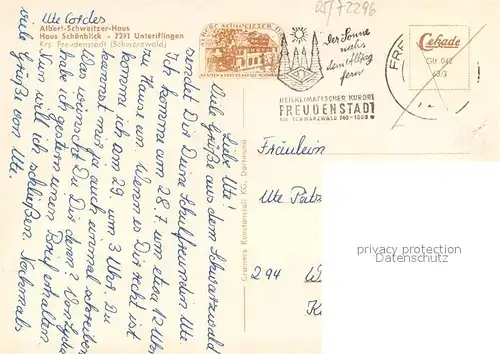 Ute Cordes
Albert-Schweitzer-Haus
Haus Schönblick - 7291 Unteriflingen
Krs. Freudenstadt (Schwarzwald)
Liebe Ute!
Viele Grüße aus dem Schwarzwald
sendet Dir Deine Schulfreundin Ute.
Ich komme am 28.7 um etwa 12 Uhr
zu Haus an. Wenn es Dir recht ist
komme ich am 29. um 3 Uhr. Du
kannst mir ja auch einmal schreiben
Was wünscht Du Dir denn? Von
habe ich gestern einen Brief erhalten.
Nun will ich schließen. Nochmals
viele Grüße von Ute.
Cramers Kunstanstalt KG, Dortmund
ALBERT SCHWEITZER
der Sonne
nah
dem Alltag
fern
HEILKLIMATISCHER KURORT
FREUDENSTADT
IM SCHWARZWALD 740-1000
FRE
Cekade
Gltr 042
63/3
Fräulein
Ute Patz
294 W
privacy protection